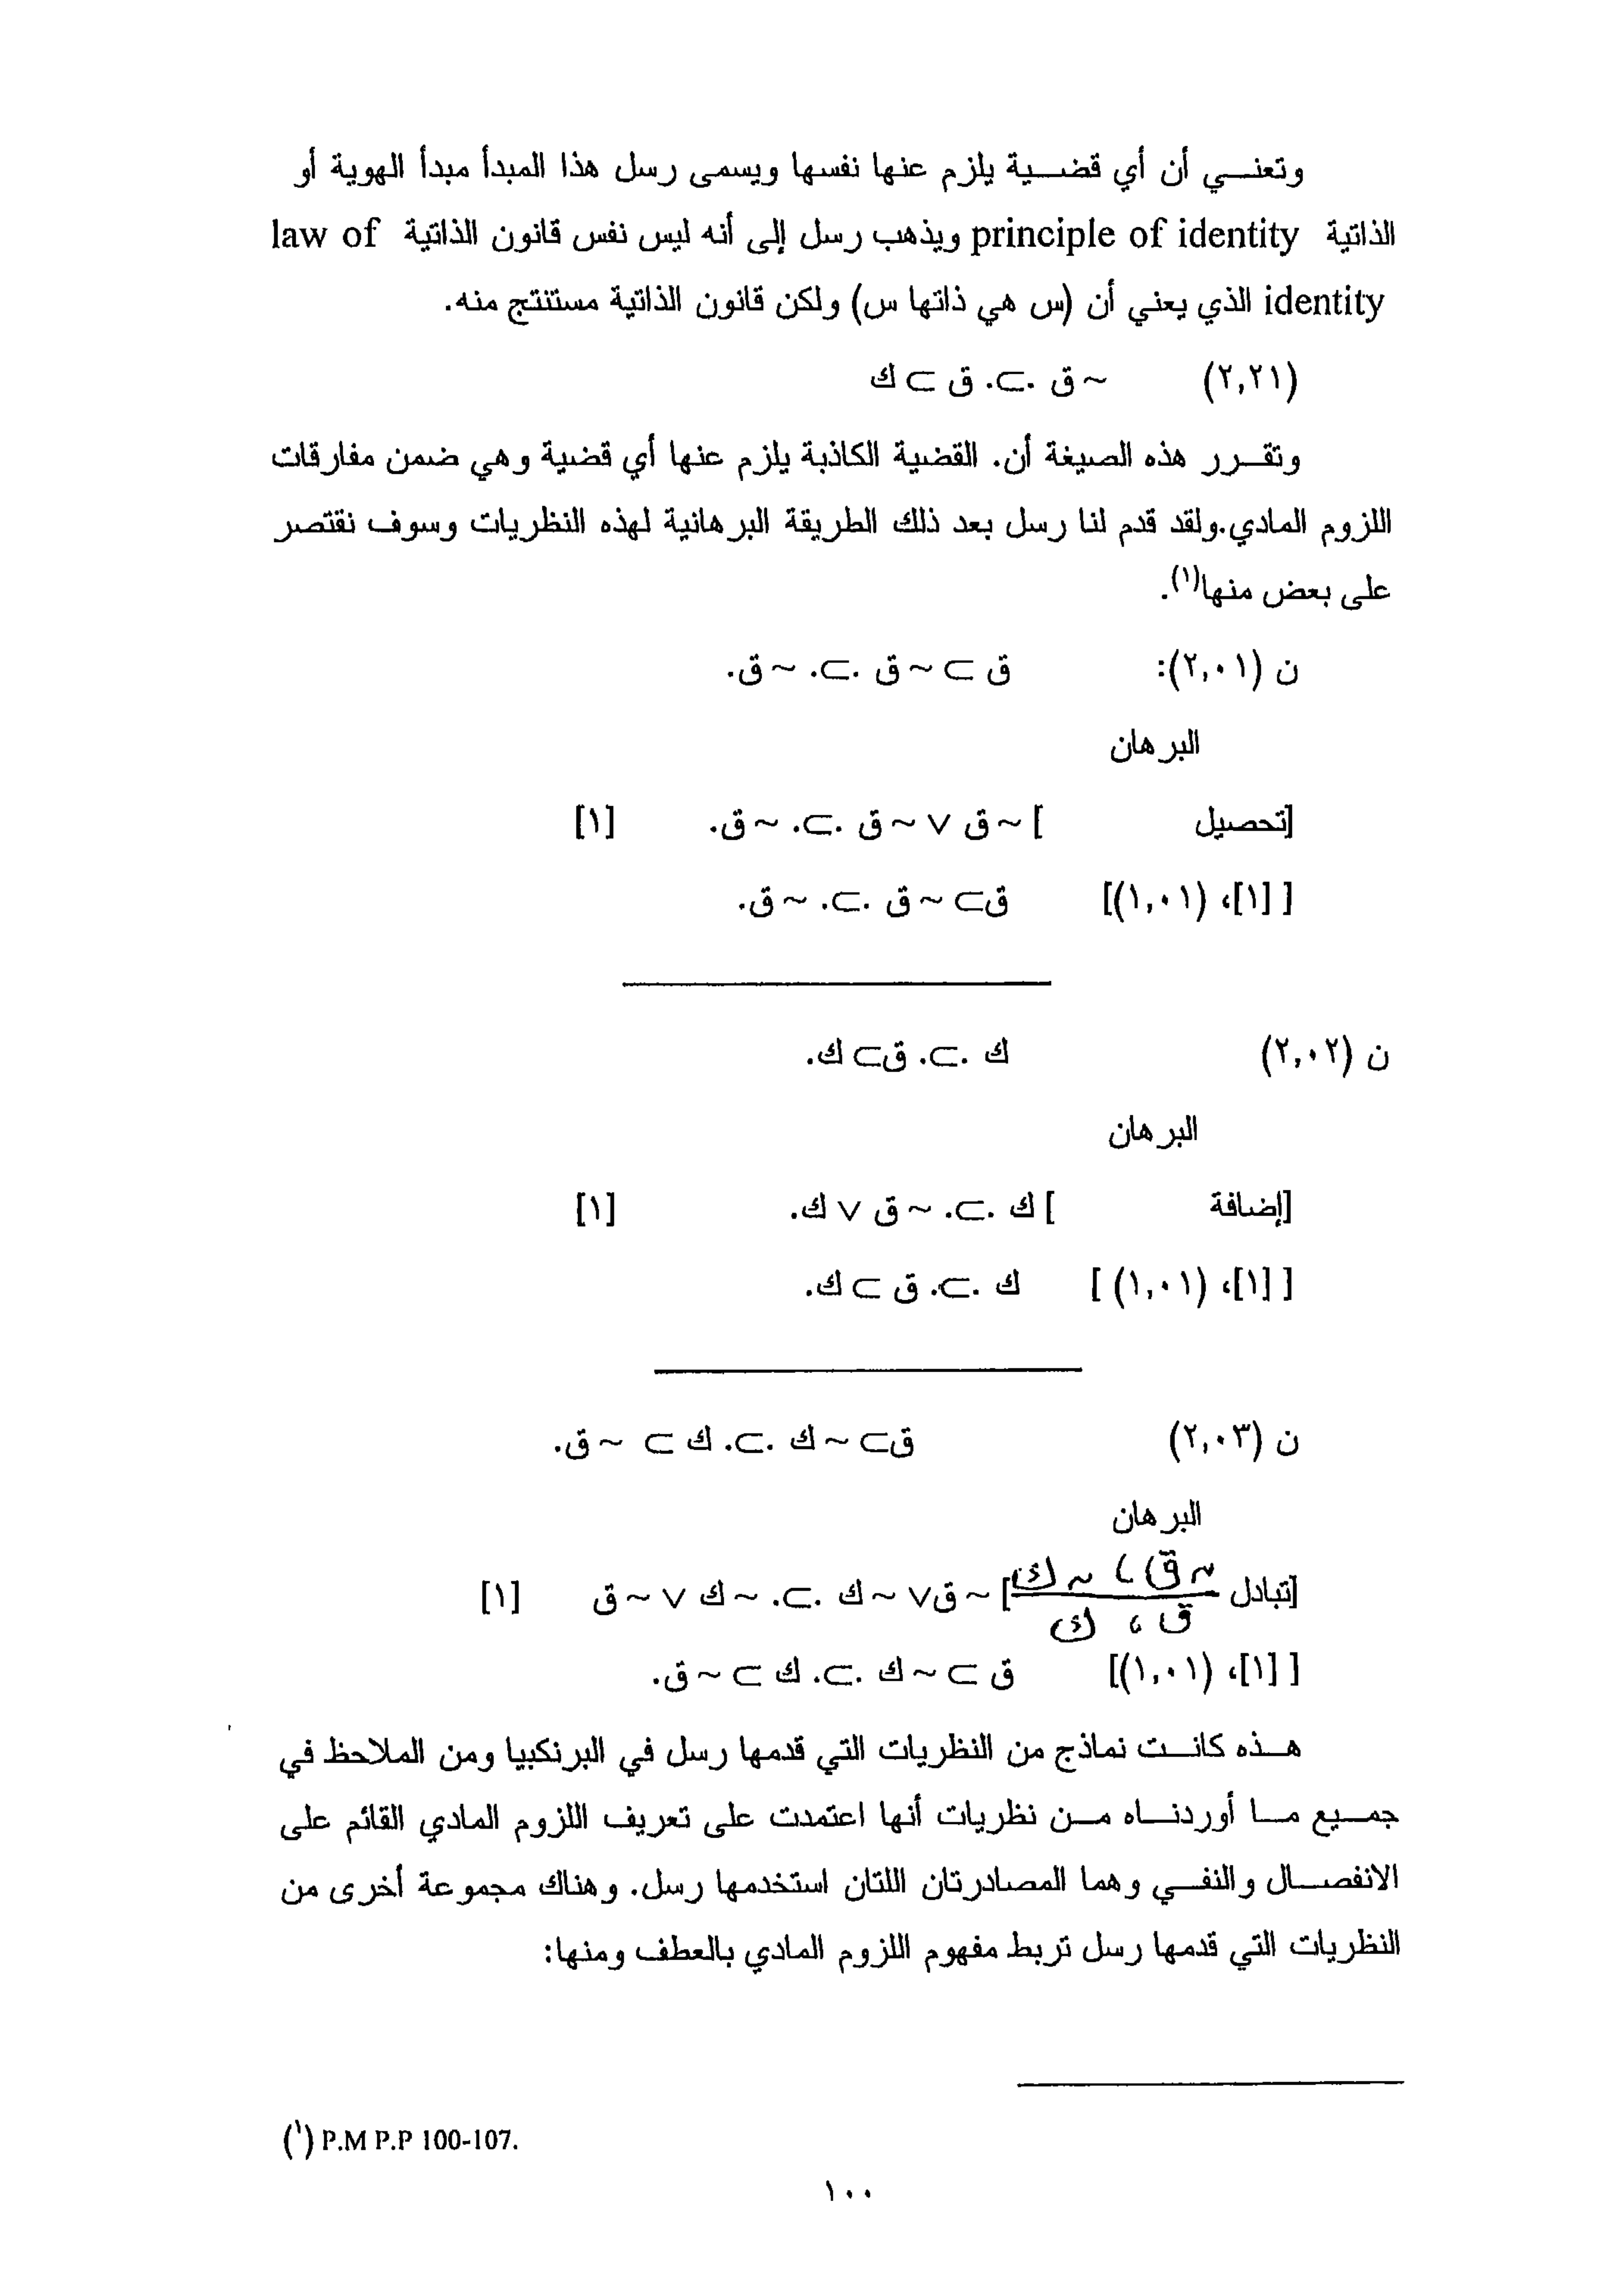 وتعني أن أي قضية يلزم عنها نفسها ويسمى رسل هذا المبدأ مبدأ الهوية أو
الذاتية principle of identity ويذهب رسل إلى أنه ليس نفس قانون الذاتية law of
identity الذي يعني أن (س هي ذاتها س) ولكن قانون الذاتية مستنتج منه.
(٢,٢١) ~ ق .⊃. ق ⊃ ك
وتقرر هذه الصيغة أن. القضية الكاذبة يلزم عنها أي قضية وهي ضمن مفارقات
اللزوم المادي.ولقد قدم لنا رسل بعد ذلك الطريقة البرهانية لهذه النظريات وسوف نقتصر
على بعض منها(١).
ن (٢,٠١): ق ⊃ ~ ق .⊃. ~ ق.
البرهان
[تحصيل ] ~ ق ∨ ~ ق .⊃. ~ ق. [١]
[ [١]، (١,٠١)] ق⊃ ~ ق .⊃. ~ ق.
ن (٢,٠٢) ك .⊃. ق⊃ ك.
البرهان
[إضافة ] ك .⊃. ~ ق ∨ ك. [١]
[ [١]، (١,٠١) ] ك .⊃. ق ⊃ ك.
ن (٢,٠٣) ق⊃ ~ ك .⊃. ك ⊃ ~ ق.
البرهان
[تبادل ~ ق ، ~ ك / ق ، ك] ~ ق∨ ~ ك .⊃. ~ ك ∨ ~ ق [١]
[ [١]، (١,٠١)] ق ⊃ ~ ك .⊃. ك ⊃ ~ ق.
هذه كانت نماذج من النظريات التي قدمها رسل في البرنكبيا ومن الملاحظ في
جميع ما أوردناه من نظريات أنها اعتمدت على تعريف اللزوم المادي القائم على
الانفصال والنفي وهما المصادرتان اللتان استخدمها رسل. وهناك مجموعة أخرى من
النظريات التي قدمها رسل تربط مفهوم اللزوم المادي بالعطف ومنها:
(١) P.M P.P 100-107.
١٠٠